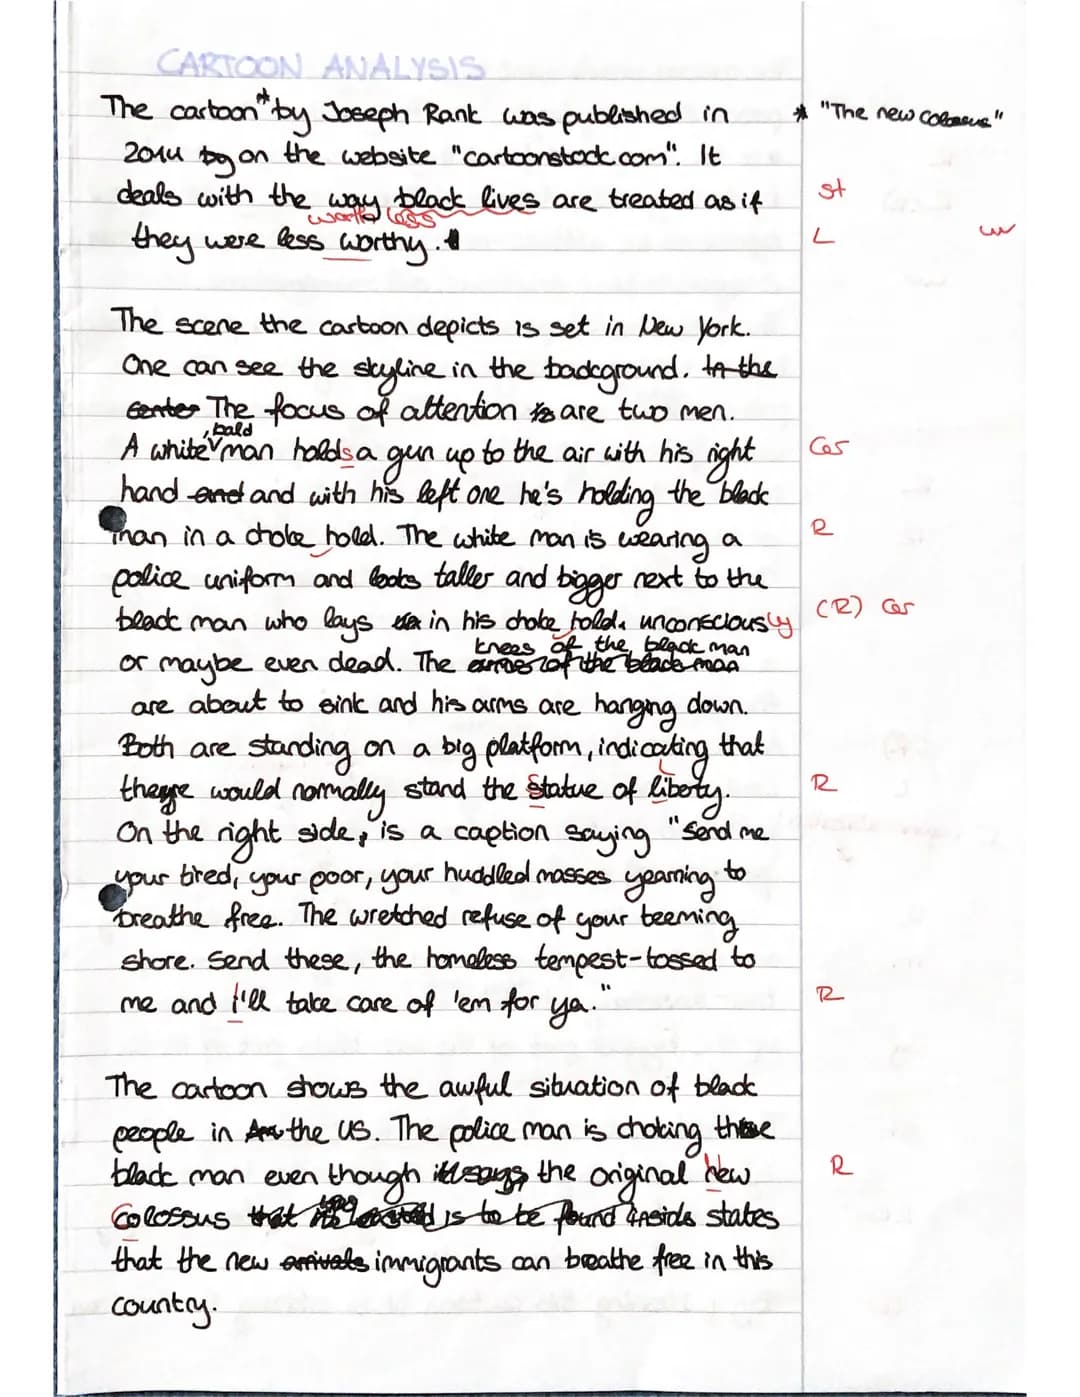 CARTOON ANALYSIS
The cartoon* by Joseph Rank was published in * "The new colossus"
2014 by on the website "cartoonstock.com". It
deals with the way black lives are treated as if st
worth less
they were less worthy. L w
The scene the cartoon depicts is set in New York.
One can see the skyline in the background. In the
center The focus of attention is are two men.
, bald
A white man holds a gun up to the air with his right Gr
hand and and with his left one he's holding the black
man in a choke hold. The white man is wearing a R
police uniform and looks taller and bigger next to the
black man who lays in his choke hold. unconsciously (R) Gr
knees of the black man
or maybe even dead. The arms of the black man
are about to sink and his arms are hanging down.
Both are standing on a big platform, indicating that
there would normally stand the statue of liberty. R
On the right side, is a caption saying "Send me
your tired, your poor, your huddled masses yearning to
breathe free. The wretched refuse of your teeming
shore. Send these, the homeless tempest-tossed to
me and i'll take care of 'em for ya." R
The cartoon shows the awful situation of black
people in the US. The police man is choking the
black man even though it says the original new R
Colossus that is to be found inside states
that the new arrivals immigrants can breathe free in this
country.